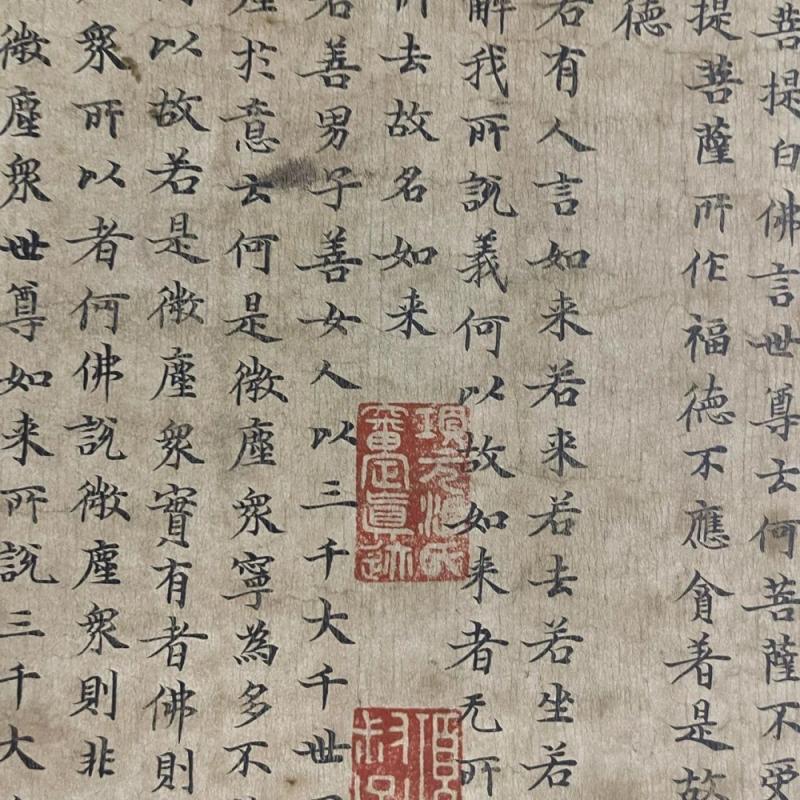 菩提白佛言世尊云何菩薩不受
提菩薩所作福德不應貪著是故
德
若有人言如来若来若去若坐若
解我所說義何以故如来者无所
去故名如来
善男子善女人以三千大千世
塵於意云何是微塵衆寧為多不
以故若是微塵衆實有者佛則
衆所以者何佛說微塵衆則非
微塵衆世尊如来所說三千大
項元汴氏
審定真跡